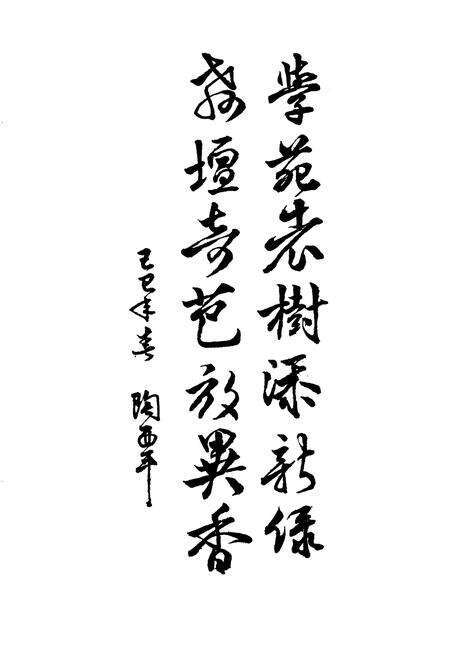 學苑樹添新绿
教壇奇芭放異香
己巳年春 陶西平